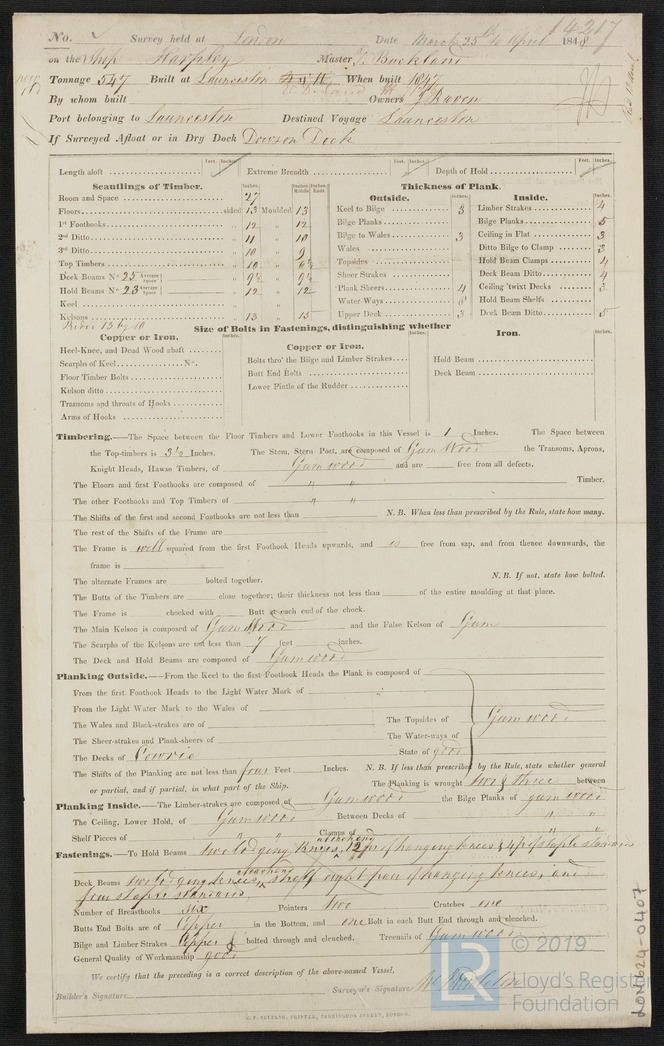 No. Survey held at London Date March 25th to April 1848
14217
on the Ship Harpley Master Buckland
Tonnage 547 Built at Launceston When built 1847
By whom built Owners J Raven
Port belonging to Launceston Destined Voyage Launceston
If Surveyed Afloat or in Dry Dock Dowson Dock
Length aloft Feet. Inches. Extreme Breadth Feet. Inches. Depth of Hold Feet. Inches.
Scantlings of Timber.
Room and Space 27
Floors sided 13 Moulded 13
1st Foothooks 12 12
2nd Ditto 11 10
3rd Ditto 10 9
Top Timbers 10 6½
Deck Beams No. 25 Average Space 9½ 9½
Hold Beams No. 23 Average Space 12 12
Keel
Kelsons 13 15
Rider 13 by 10
Thickness of Plank.
Outside.
Keel to Bilge 3
Bilge Planks
Bilge to Wales 3
Wales
Topsides
Sheer Strakes
Plank Sheers 4
Water-Ways
Upper Deck 3
Inside.
Limber Strakes 4
Bilge Planks 5
Ceiling in Flat 3
Ditto Bilge to Clamp 3
Hold Beam Clamps 4
Deck Beam Ditto 4
Ceiling 'twixt Decks 3
Hold Beam Shelfs
Deck Beam Ditto 5
Size of Bolts in Fastenings, distinguishing whether
Copper or Iron.
Heel-Knee, and Dead Wood abaft
Scarphs of Keel No.
Floor Timber Bolts
Kelson ditto
Transoms and throats of Hooks
Arms of Hooks
Copper or Iron.
Bolts thro' the Bilge and Limber Strakes
Butt End Bolts
Lower Pintle of the Rudder
Iron.
Hold Beam
Deck Beam
Timbering.—The Space between the Floor Timbers and Lower Foothooks in this Vessel is 1 Inches. The Space between
the Top-timbers is 3½ Inches. The Stem, Stern Post, are composed of Gum Wood the Transoms, Aprons,
Knight Heads, Hawse Timbers, of Gumwood and are free from all defects.
The Floors and first Foothooks are composed of " " Timber.
The other Foothooks and Top Timbers of " "
The Shifts of the first and second Foothooks are not less than N. B. When less than prescribed by the Rule, state how many.
The rest of the Shifts of the Frame are
The Frame is well squared from the first Foothook Heads upwards, and is free from sap, and from thence downwards, the
frame is
The alternate Frames are bolted together. N. B. If not, state how bolted.
The Butts of the Timbers are close together; their thickness not less than of the entire moulding at that place.
The Frame is chocked with Butt at each end of the chock.
The Main Kelson is composed of Gum Wood and the False Kelson of Gum
The Scarphs of the Kelsons are not less than 7 feet inches.
The Deck and Hold Beams are composed of Gumwood
Planking Outside.—From the Keel to the first Foothook Heads the Plank is composed of
From the first Foothook Heads to the Light Water Mark of
From the Light Water Mark to the Wales of
The Wales and Black-strakes are of The Topsides of Gumwood
The Sheer-strakes and Plank-sheers of The Water-ways of
The Decks of Cowrie State of good
The Shifts of the Planking are not less than four Feet Inches. N. B. If less than prescribed by the Rule, state whether general
or partial, and if partial, in what part of the Ship. The Planking is wrought two & three between
Planking Inside.—The Limber-strakes are composed of Gumwood the Bilge Planks of gum wood
The Ceiling, Lower Hold, of Gumwood Between Decks of " "
Shelf Pieces of " " Clamps of " "
Fastenings.—To Hold Beams two lodging knees, 12 pr of hanging knees & 4 pr of staple standards
Deck Beams two lodging knees, shelf eight pair of hanging knees, and
four staple standards
Number of Breasthooks six Pointers two Crutches one
Butts End Bolts are of Copper in the Bottom, and one Bolt in each Butt End through and clenched.
Bilge and Limber Strakes Copper & bolted through and clenched. Treenails of Gumwood
General Quality of Workmanship good
We certify that the preceding is a correct description of the above-named Vessel.
Builder's Signature Surveyor's Signature
PRINTER, FARRINGDON STREET, LONDON.
© 2019
LR Lloyd's Register
Foundation
LON 624-0407